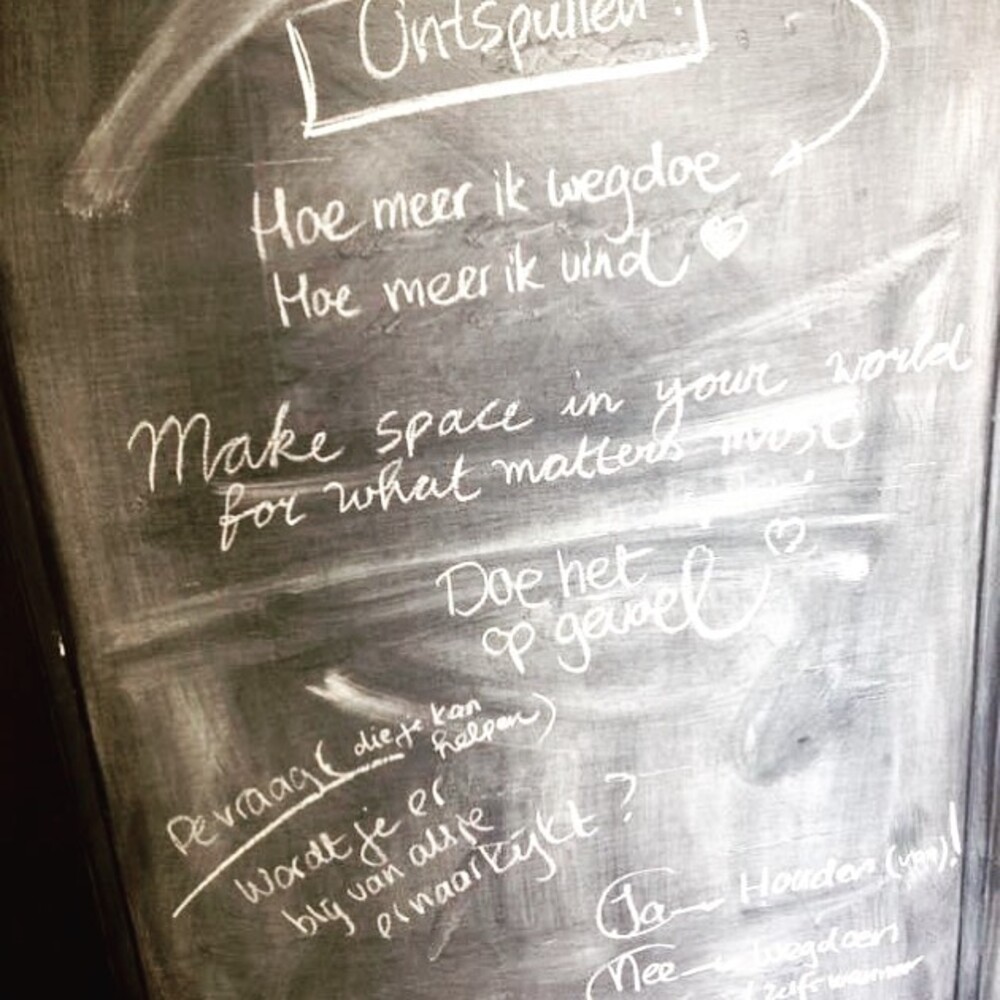 Ontspullen!
Hoe meer ik wegdoe
Hoe meer ik vind
Make space in your world
for what matters most
Doe het
op gevoel
De vraag (die je kan
helpen)
Wordt je er
blij van als je
er naar kijkt?
Ja Houden (van)!
Nee wegdoen
zelfs wanneer